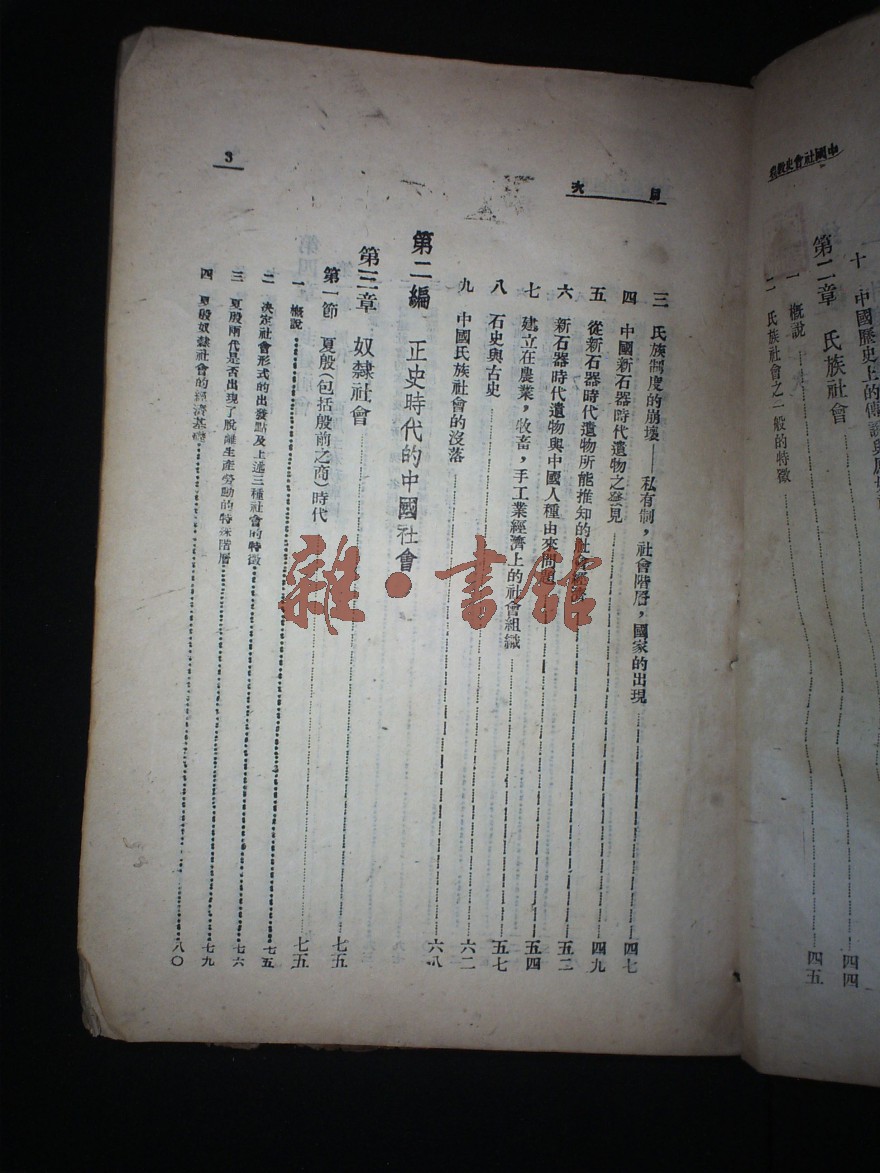 中國社會史教程
十 中國歷史上的傳說與
第二章 氏族社會
一 概說 四四
二 氏族社會之一般的特徵 四五
目次
三 氏族制度的崩壞——私有制，社會階層，國家的出現 四七
四 中國新石器時代遺物之發見 四九
五 從新石器時代遺物所能推知的社會經濟 五二
六 新石器時代遺物與中國人種由來問題 五四
七 建立在農業，牧畜，手工業經濟上的社會組織 五七
八 石史與古史 六二
九 中國氏族社會的沒落 六八
第二編 正史時代的中國社會
第三章 奴隸社會 七五
第一節 夏殷（包括殷前之商）時代 七五
一 概說 七五
二 決定社會形式的出發點及上述三種社會的特徵 七六
三 夏殷兩代是否出現了脫離生產勞動的特殊階層 七九
四 夏殷奴隸社會的經濟基礎 八〇
3
雜·書館